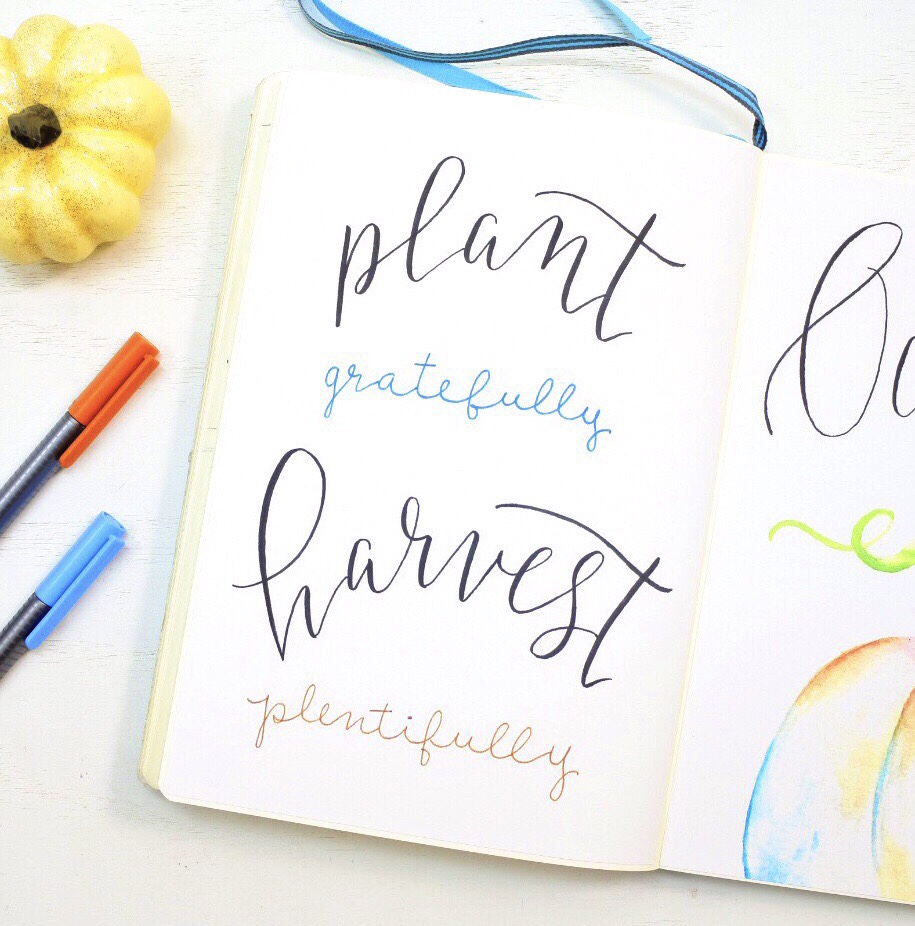 plant
gratefully
harvest
plentifully